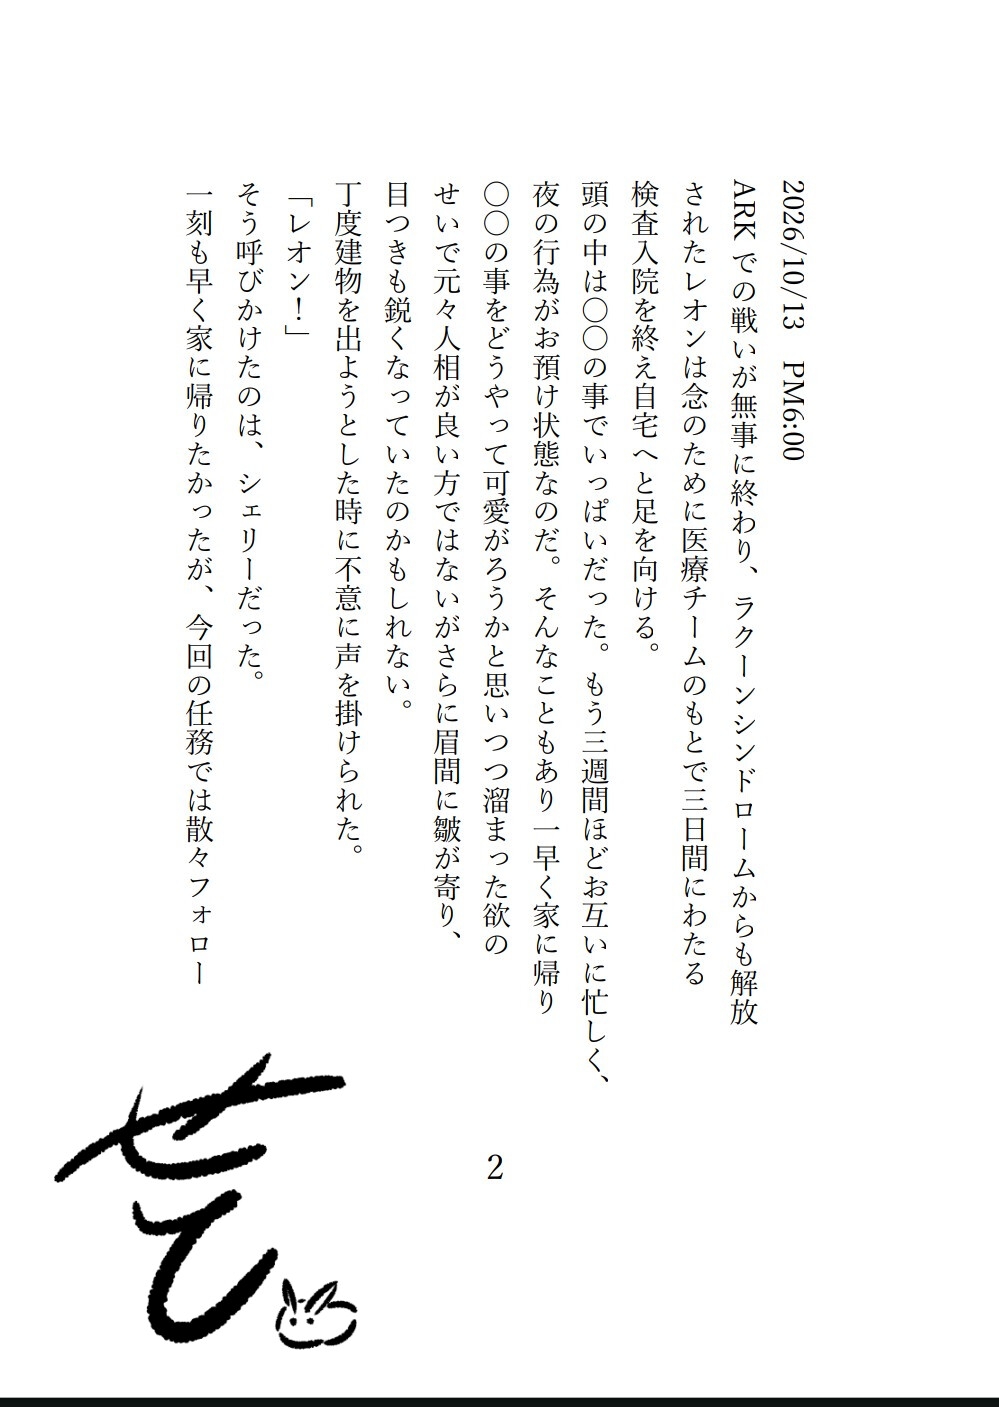 2026/10/13　PM6:00
ARKでの戦いが無事に終わり、ラクーンシンドロームからも解放
されたレオンは念のために医療チームのもとで三日間にわたる
検査入院を終え自宅へと足を向ける。
頭の中は〇〇の事でいっぱいだった。もう三週間ほどお互いに忙しく、
夜の行為がお預け状態なのだ。そんなこともあり一早く家に帰り
〇〇の事をどうやって可愛がろうかと思いつつ溜まった欲の
せいで元々人相が良い方ではないがさらに眉間に皺が寄り、
目つきも鋭くなっていたのかもしれない。
丁度建物を出ようとした時に不意に声を掛けられた。
「レオン！」
そう呼びかけたのは、シェリーだった。
一刻も早く家に帰りたかったが、今回の任務では散々フォロー
2
せひ